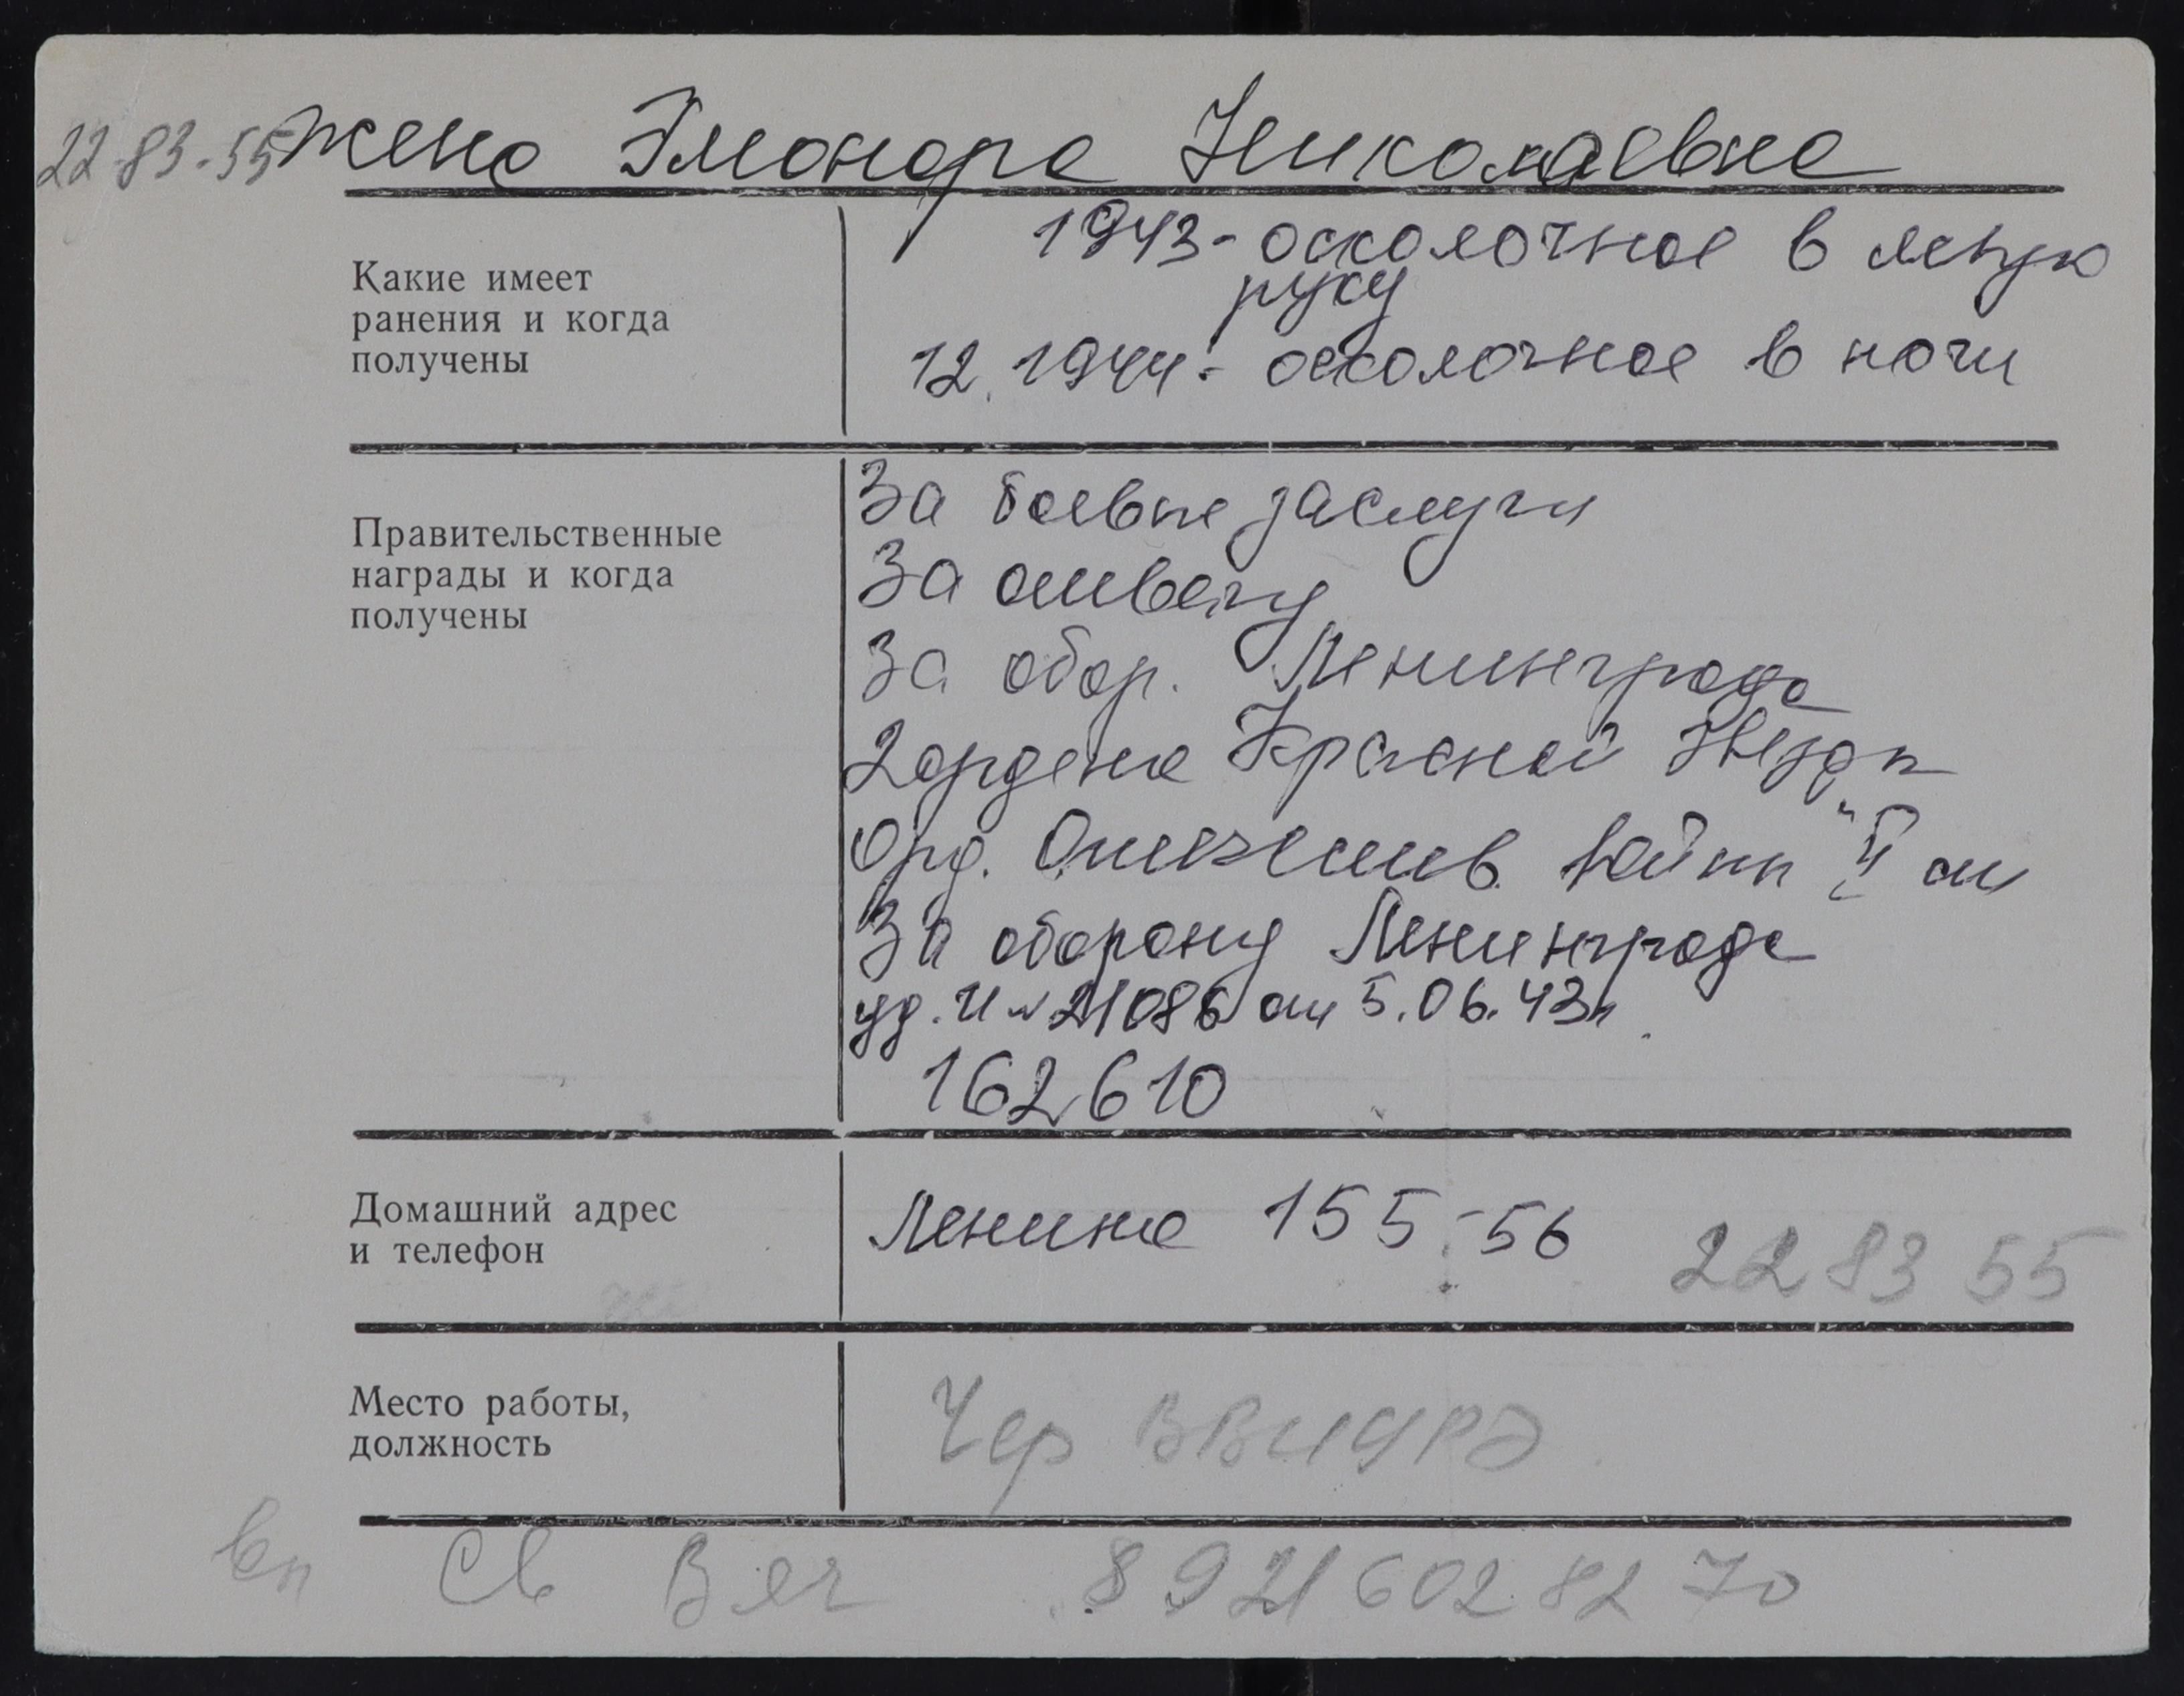 22-83-55 жена Элеонора Николаевна
Какие имеет
ранения и когда
получены
1943- осколочное в левую
руку
12.1944- осколочное в ноги
Правительственные
награды и когда
получены
За боевые заслуги
За отвагу
За обор. Ленинграда
2 ордена Красной Звезды
Орд. Отечеств. войны "II ст
За оборону Ленинграда
уд. И № 21086 от 5.06.43г.
162610
Домашний адрес
и телефон
Ленина 155-56 22 83 55
Место работы,
должность
Чер ВВИУРЭ
вп Св Вяч 8 921 602 82 70